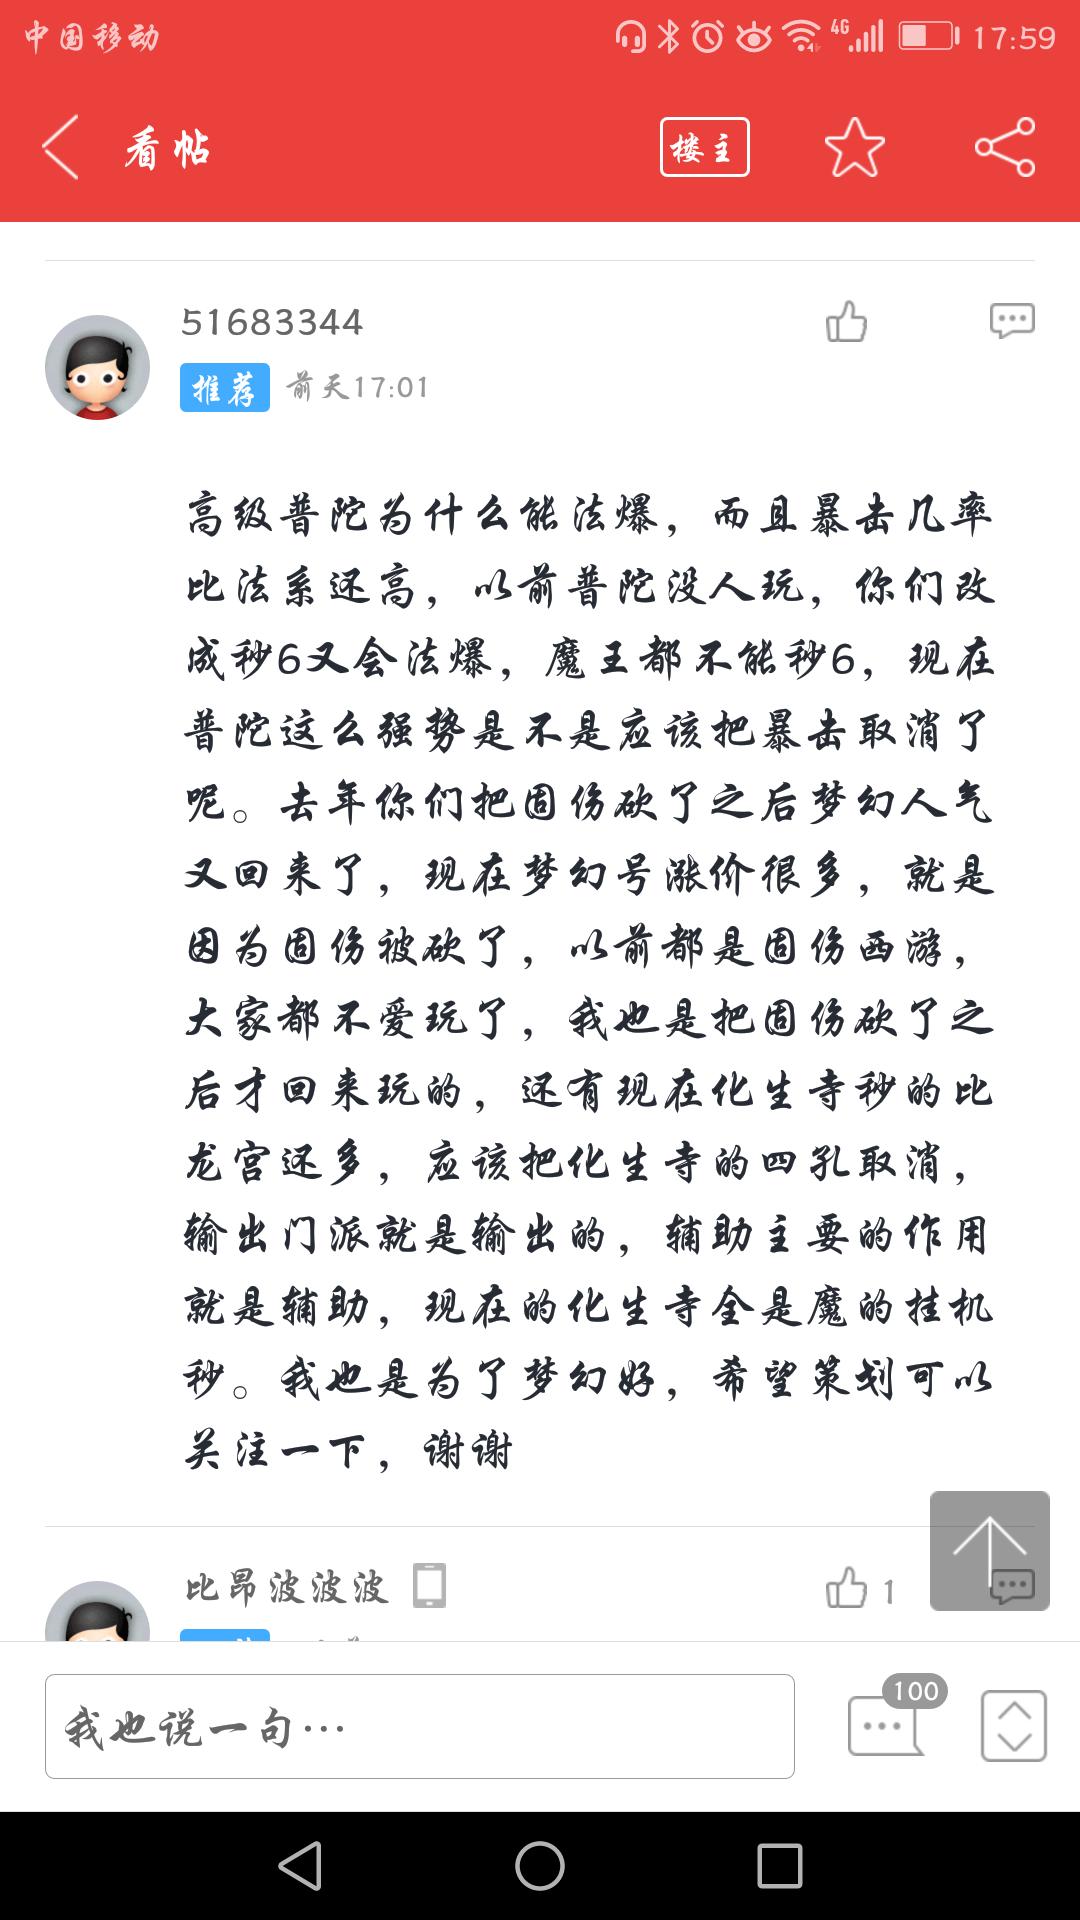 中国移动
4G
17:59
看帖
楼主
51683344
推荐
前天17:01
高级普陀为什么能法爆，而且暴击几率
比法系还高，以前普陀没人玩，你们改
成秒6又会法爆，魔王都不能秒6，现在
普陀这么强势是不是应该把暴击取消了
呢。去年你们把固伤砍了之后梦幻人气
又回来了，现在梦幻号涨价很多，就是
因为固伤被砍了，以前都是固伤西游，
大家都不爱玩了，我也是把固伤砍了之
后才回来玩的，还有现在化生寺秒的比
龙宫还多，应该把化生寺的四孔取消，
输出门派就是输出的，辅助主要的作用
就是辅助，现在的化生寺全是魔的挂机
秒。我也是为了梦幻好，希望策划可以
关注一下，谢谢
比昂波波波
1
我也说一句…
100